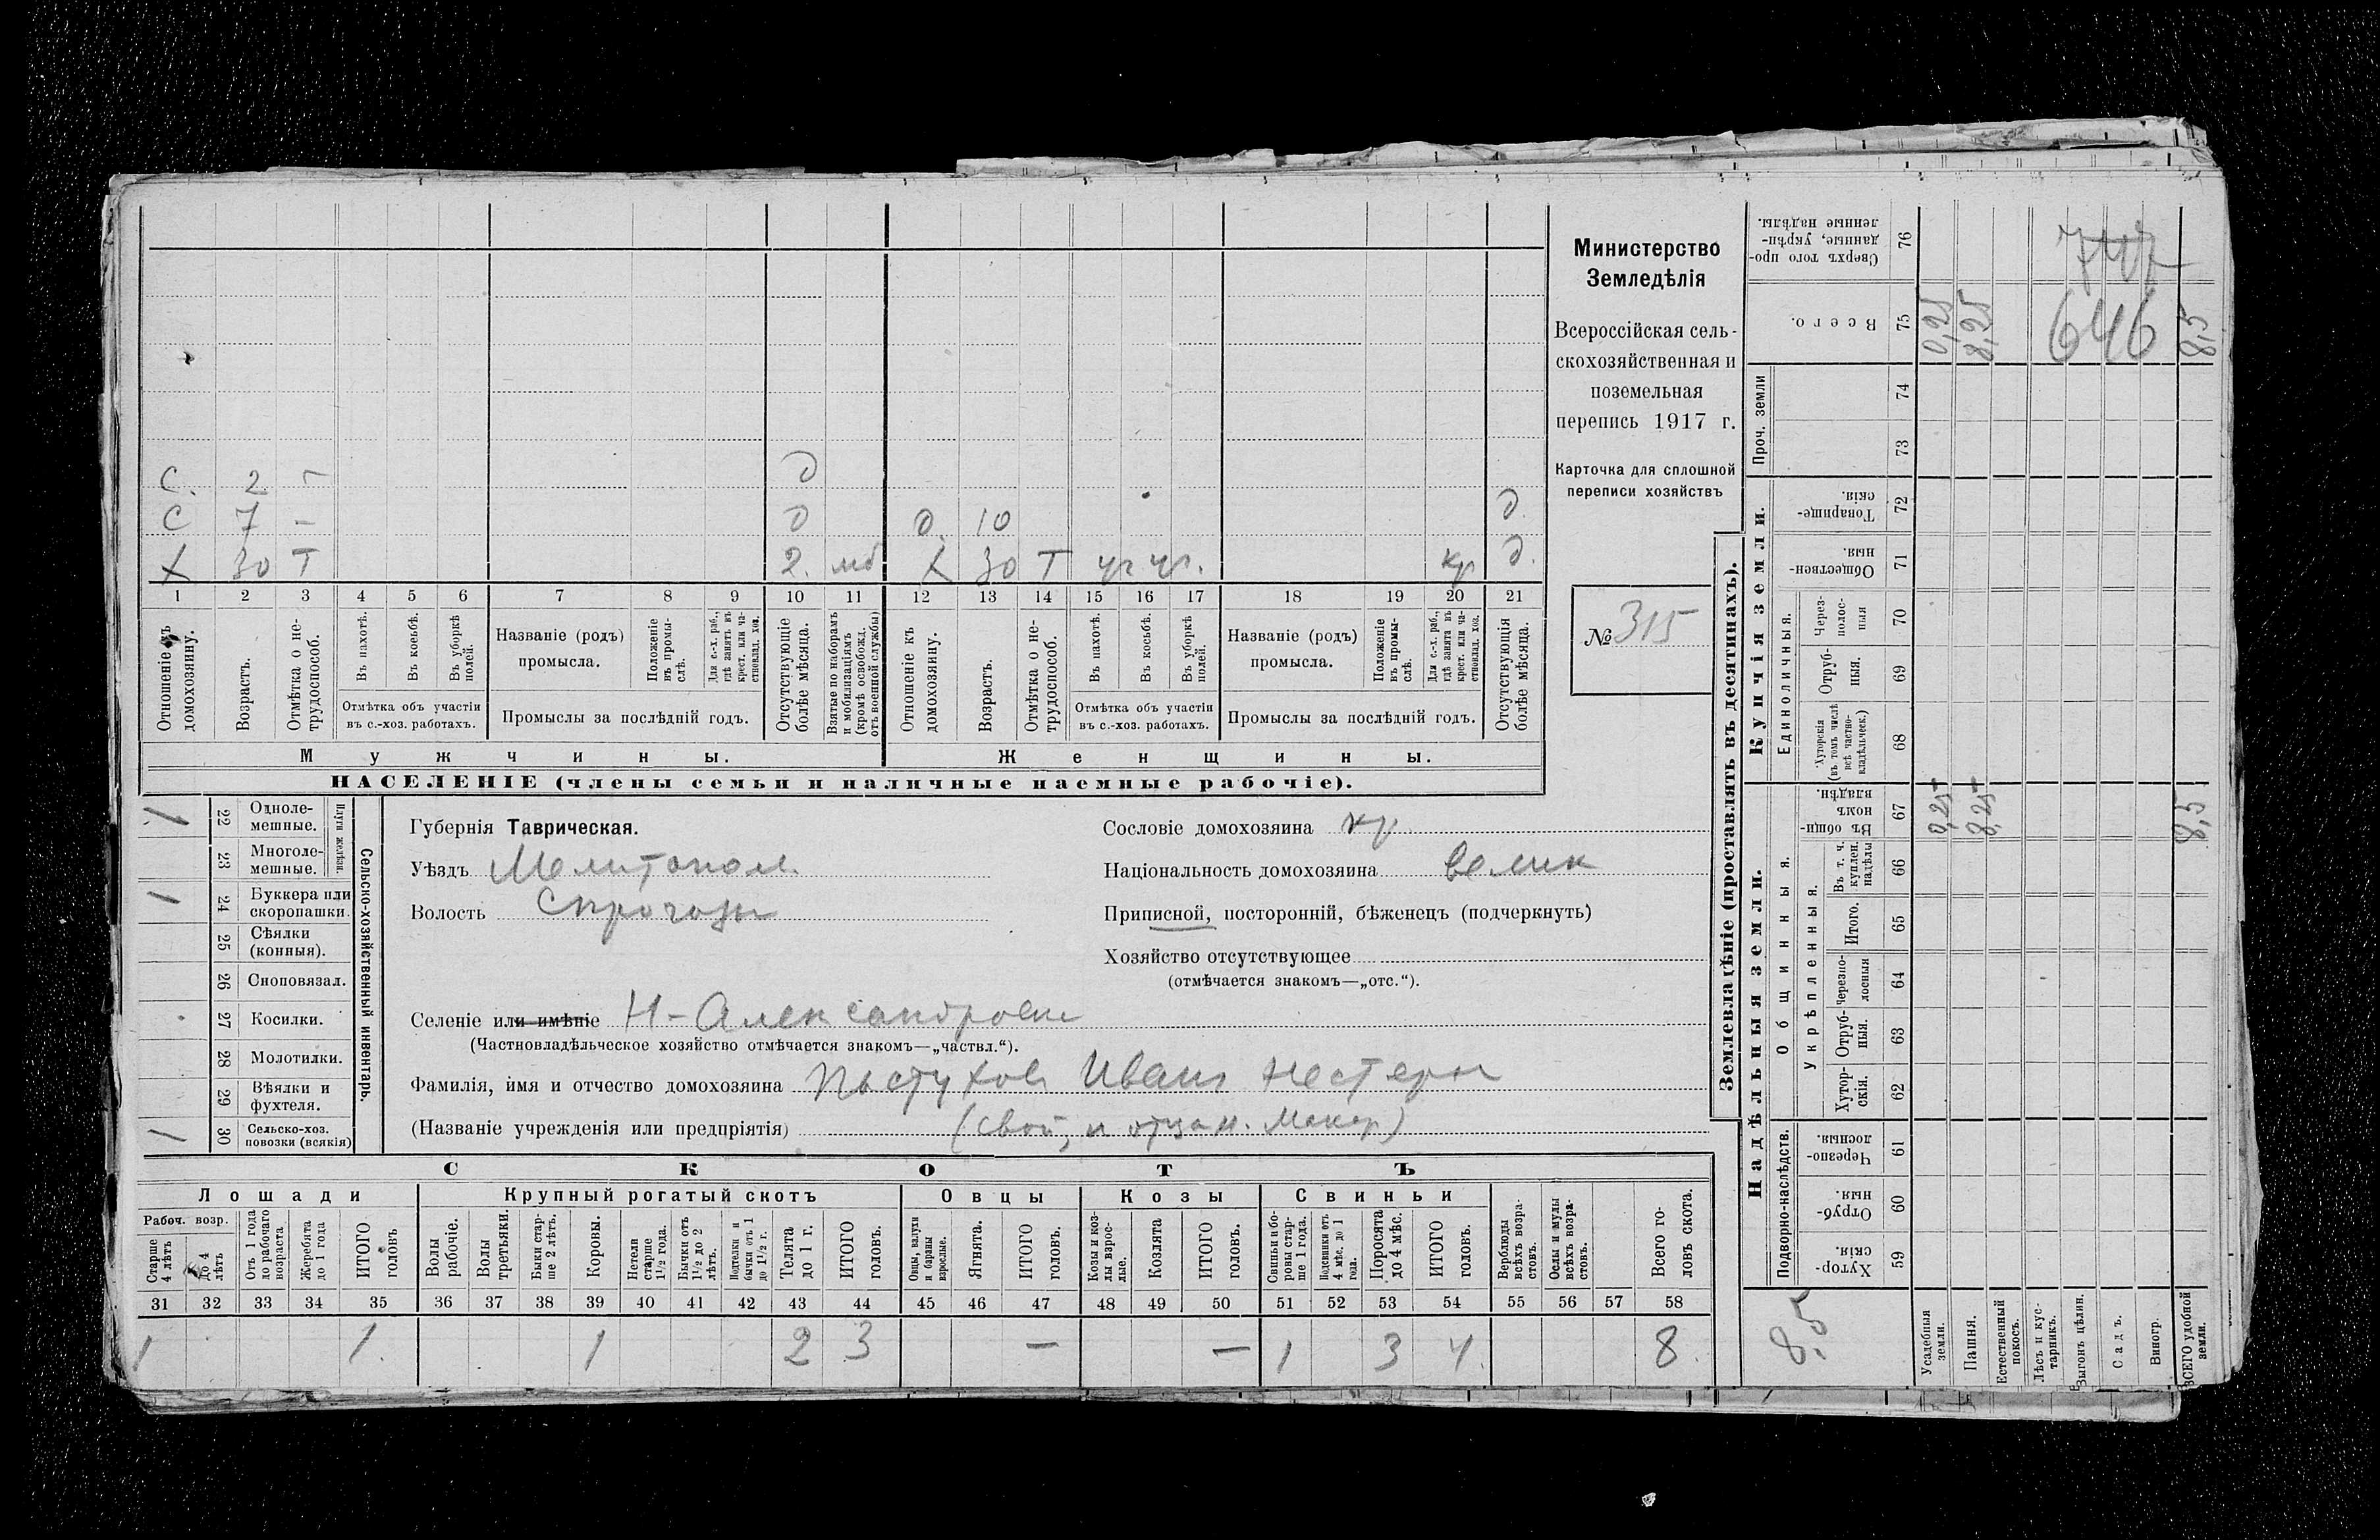 С. 2 – д
С 7 – д д. 10 д.
Х 30 Т 2. мб Х 30 Т чг чг. кр д.
1 2 3 4 5 6 7 8 9 10 11 12 13 14 15 16 17 18 19 20 21
Отношеніе къ домохозяину.
Возрастъ.
Отмѣтка о нетрудоспособ.
Въ пахотѣ.
Въ косьбѣ.
Въ уборкѣ полей.
Отмѣтка объ участіи
въ с.-хоз. работахъ.
Названіе (родъ)
промысла.
Положеніе въ промыслѣ.
Для с.-х. раб., гдѣ занятъ въ крест. или частновлад. хоз.
Промыслы за послѣдній годъ.
Отсутствующіе болѣе мѣсяца.
Взятые по наборамъ и мобилизаціямъ (кромѣ освобожд. отъ военной службы)
Отношеніе къ домохозяину.
Возрастъ.
Отмѣтка о нетрудоспособ.
Въ пахотѣ.
Въ косьбѣ.
Въ уборкѣ полей.
Отмѣтка объ участіи
въ с.-хоз. работахъ.
Названіе (родъ)
промысла.
Положеніе въ промыслѣ.
Для с.-х. раб., гдѣ занята въ крест. или частновлад. хоз.
Промыслы за послѣдній годъ.
Отсутствующія болѣе мѣсяца.
Мужчины. Женщины.
НАСЕЛЕНІЕ (члены семьи и наличные наемные рабочіе).
Министерство
Земледѣлія
Всероссійская сель-
скохозяйственная и
поземельная
перепись 1917 г.
Карточка для сплошной
переписи хозяйствъ
№ 315
1 22 Одноле-
мешные.
23 Многоле-
мешные.
Плуги желѣзн.
1 24 Буккера или
скоропашки.
25 Сѣялки
(конныя).
26 Сноповязал.
27 Косилки.
28 Молотилки.
29 Вѣялки и
фухтеля.
1 30 Сельско-хоз.
повозки (всякія)
Сельско-хозяйственный инвентарь.
Губернія Таврическая.
Уѣздъ Мелитопол.
Волость
Селеніе или имѣніе Н-Александровка
(Частновладѣльческое хозяйство отмѣчается знакомъ—„частвл.“).
Фамилія, имя и отчество домохозяина Пастухов Иван Нестеров
(Названіе учрежденія или предпріятія) (свой, и отца н. Макар)
Сословіе домохозяина кр.
Національность домохозяина велик
Приписной, посторонній, бѣженецъ (подчеркнуть)
Хозяйство отсутствующее
(отмѣчается знакомъ—„отс.“).
СКОТЪ
Лошади Крупный рогатый скотъ Овцы Козы Свиньи
Рабоч. возр.
Старше 4 лѣтъ
до 4 лѣтъ
Отъ 1 года до рабочаго возраста
Жеребята до 1 года
ИТОГО головъ
Волы рабочіе.
Волы третьяки.
Быки старше 2 лѣтъ.
Коровы.
Нетели старше 1½ года.
Бычки отъ 1½ до 2 лѣтъ.
Подтелки и бычки отъ 1 до 1½ г.
Телята до 1 г.
ИТОГО головъ.
Овцы, валухи и бараны взрослые.
Ягнята.
ИТОГО головъ.
Козы и козлы взрослые.
Козлята
ИТОГО головъ.
Свиньи и боровы старше 1 года.
Подсвинки отъ 4 мѣс. до 1 года.
Поросята до 4 мѣс.
ИТОГО головъ.
Верблюды всѣхъ возрастовъ.
Ослы и мулы всѣхъ возрастовъ.
Всего головъ скота.
31 32 33 34 35 36 37 38 39 40 41 42 43 44 45 46 47 48 49 50 51 52 53 54 55 56 57 58
1 1. 1 2 3 – – 1 3 4. 8.
Землевладѣніе (проставлять въ десятинахъ).
Надѣльныя земли. Купчія земли. Проч. земли
Подворно-наслѣдств.
Общинныя.
Укрѣпленныя.
Единоличныя.
59 Хутор-
скія.
60 Отруб-
ныя.
61 Черезпо-
лосныя.
62 Хутор-
скія.
63 Отруб-
ныя.
64 Черезпо-
лосныя
65 Итого.
66 Въ т. ч.
куплен.
надѣлы
67 Въ общи-
номъ
владѣн.
68 Хуторскія
(въ томъ числѣ
всѣ частно-
владѣльческ.)
69 Отруб-
ныя.
70 Через-
полос-
ныя
71 Обществен-
ныя.
72 Товарище-
скія.
73 74
75 Всего.
76 Сверхъ того про-
данные, укрѣп-
ленные надѣлы.
8,5
Усадебныя земли. 0,25 0,25
Пашня. 8,25 8,25
Естественный покосъ.
Лѣсъ и кустарникъ.
Выгонъ цѣлин.
Садъ.
Виногр.
ВСЕГО удобной земли. 8,5 8,5
747
646